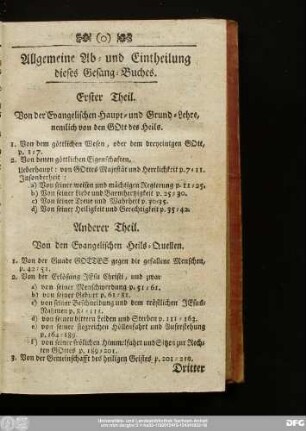 (0)
Allgemeine Ab- und Eintheilung
dieses Gesang-Buches.
Erster Theil.
Von der Evangelischen Haupt- und Grund-Lehre,
nemlich von den GOtt des Heils.
1. Von dem göttlichen Wesen, oder dem dreyeinigen GOtt,
p. 1:7.
2. Von denen göttlichen Eigenschaften,
Ueberhaupt: von GOttes Majestät und Herrlichkeit p. 7:11.
Insonderheit:
a) Von seiner weisen und mächtigen Regierung p. 11:25.
b) Von seiner Liebe und Barmhertzigkeit p. 25:30.
c) Von seiner Treue und Wahrheit p. 30:35.
d) Von seiner Heiligkeit und Gerechtigkeit p. 35:42.
Anderer Theil.
Von den Evangelischen Heils-Quellen.
1. Von der Gnade GOTTES gegen die gefallene Menschen,
p. 42:51.
2. Von der Erlösung JEsu Christi, und zwar
a) von seiner Menschwerdung p. 51:61.
b) von seiner Geburt p. 61:81.
c) von seiner Beschneidung und dem tröstlichen JEsus-
Nahmen p. 81:111.
d) von seinen bittern Leiden und Sterben p. 111:162.
e) von seiner siegreichen Höllenfahrt und Auferstehung
p. 162:189
f) von seiner frölichen Himmelfahrt und Sitzen zur Rech-
ten GOttes p. 189:201.
3. Von der Gemeinschafft des heiligen Geistes p. 201:210.
Dritter
Universitäts- und Landesbibliothek Sachsen-Anhalt
DFG